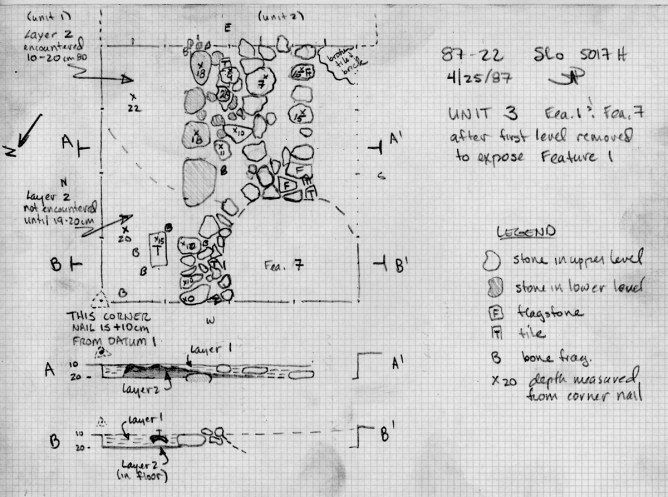 (unit 1)
Layer 2
encountered
10-20cm BD
E
(unit 2)
broken
tile &
brick
x
22
A
A'
N
S
N
Layer 2
not encountered
until 19-20cm
x
20
B
B'
Fea. 7
W
THIS CORNER
NAIL IS +10cm
FROM DATUM 1
87-22 SLO 5017H
4/25/87
UNIT 3 Fea. 1 & Fea. 7
after first level removed
to expose Feature 1
LEGEND
stone in upper level
stone in lower level
F flagstone
T tile
B bone frag.
x 20 depth measured
from corner nail
A
10
20
Layer 1
Layer 2
A'
B
10
20
Layer 1
T
Layer 2
(in floor)
B'